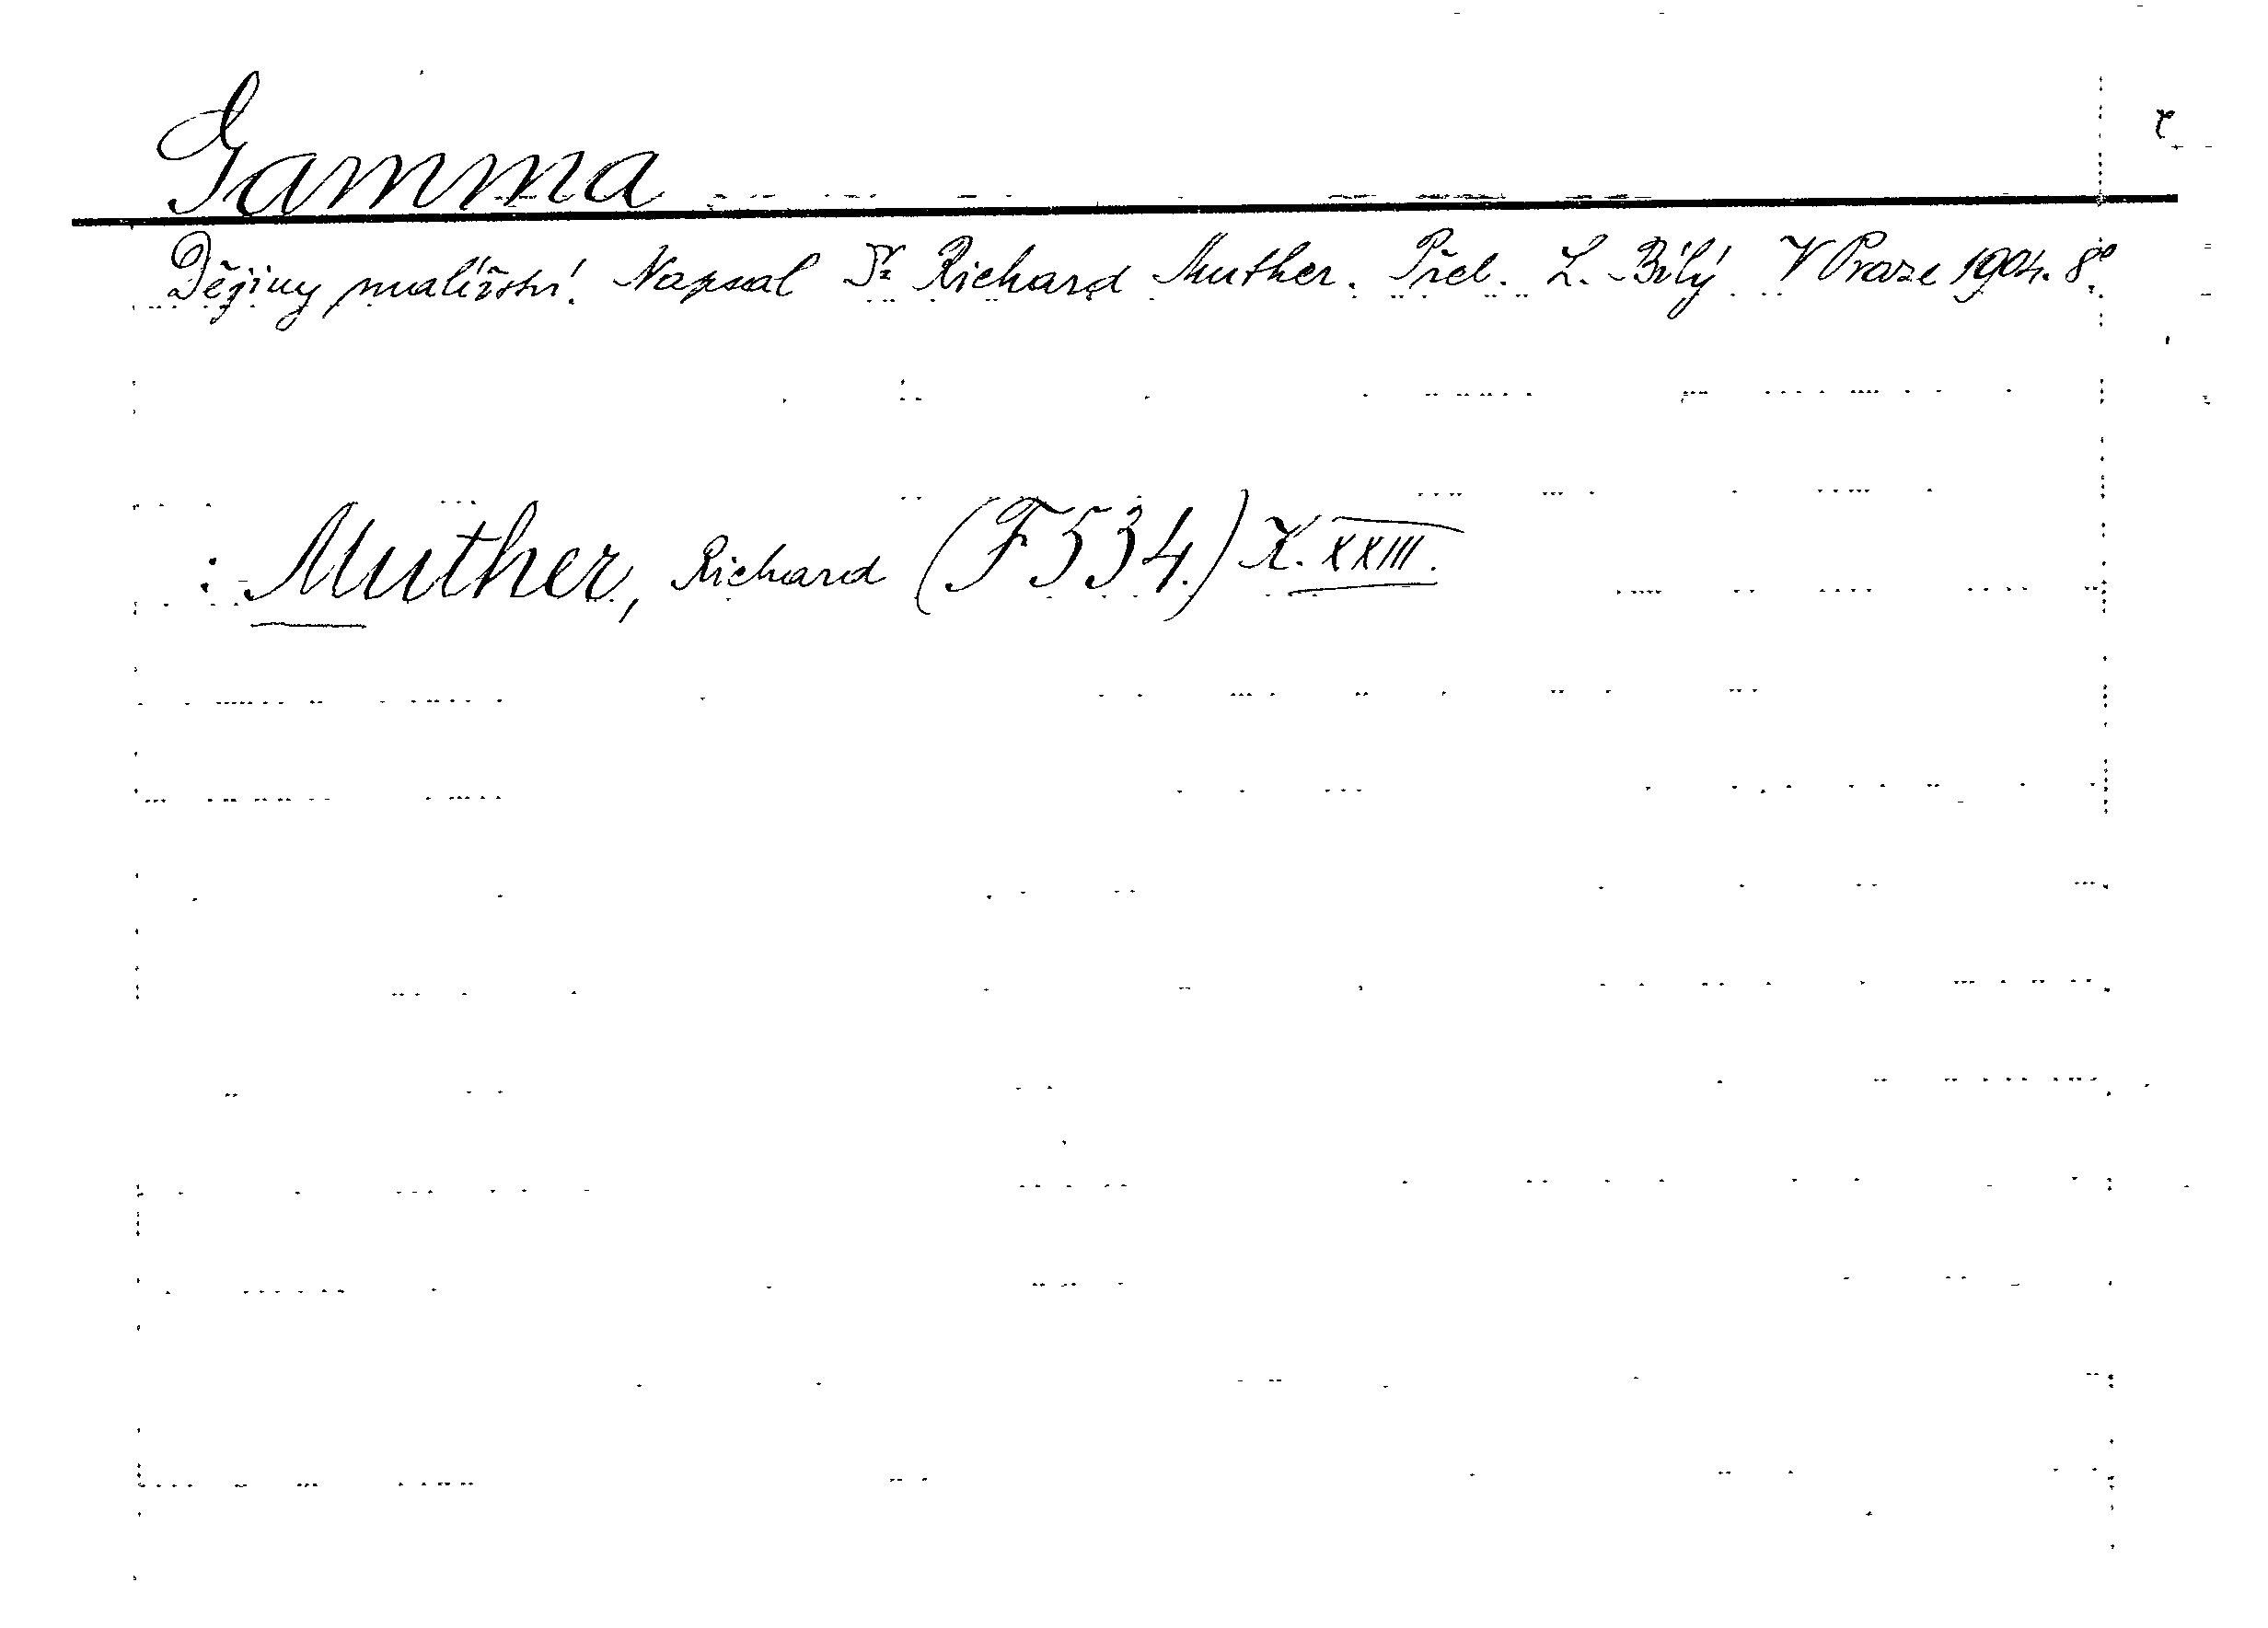 Gamma
Dějiny malířství. Napsal Dr Richard Muther. Přel. L. Bílý. V Praze 1904. 8°.
: Muther, Richard (F 534.) X. XXIII.